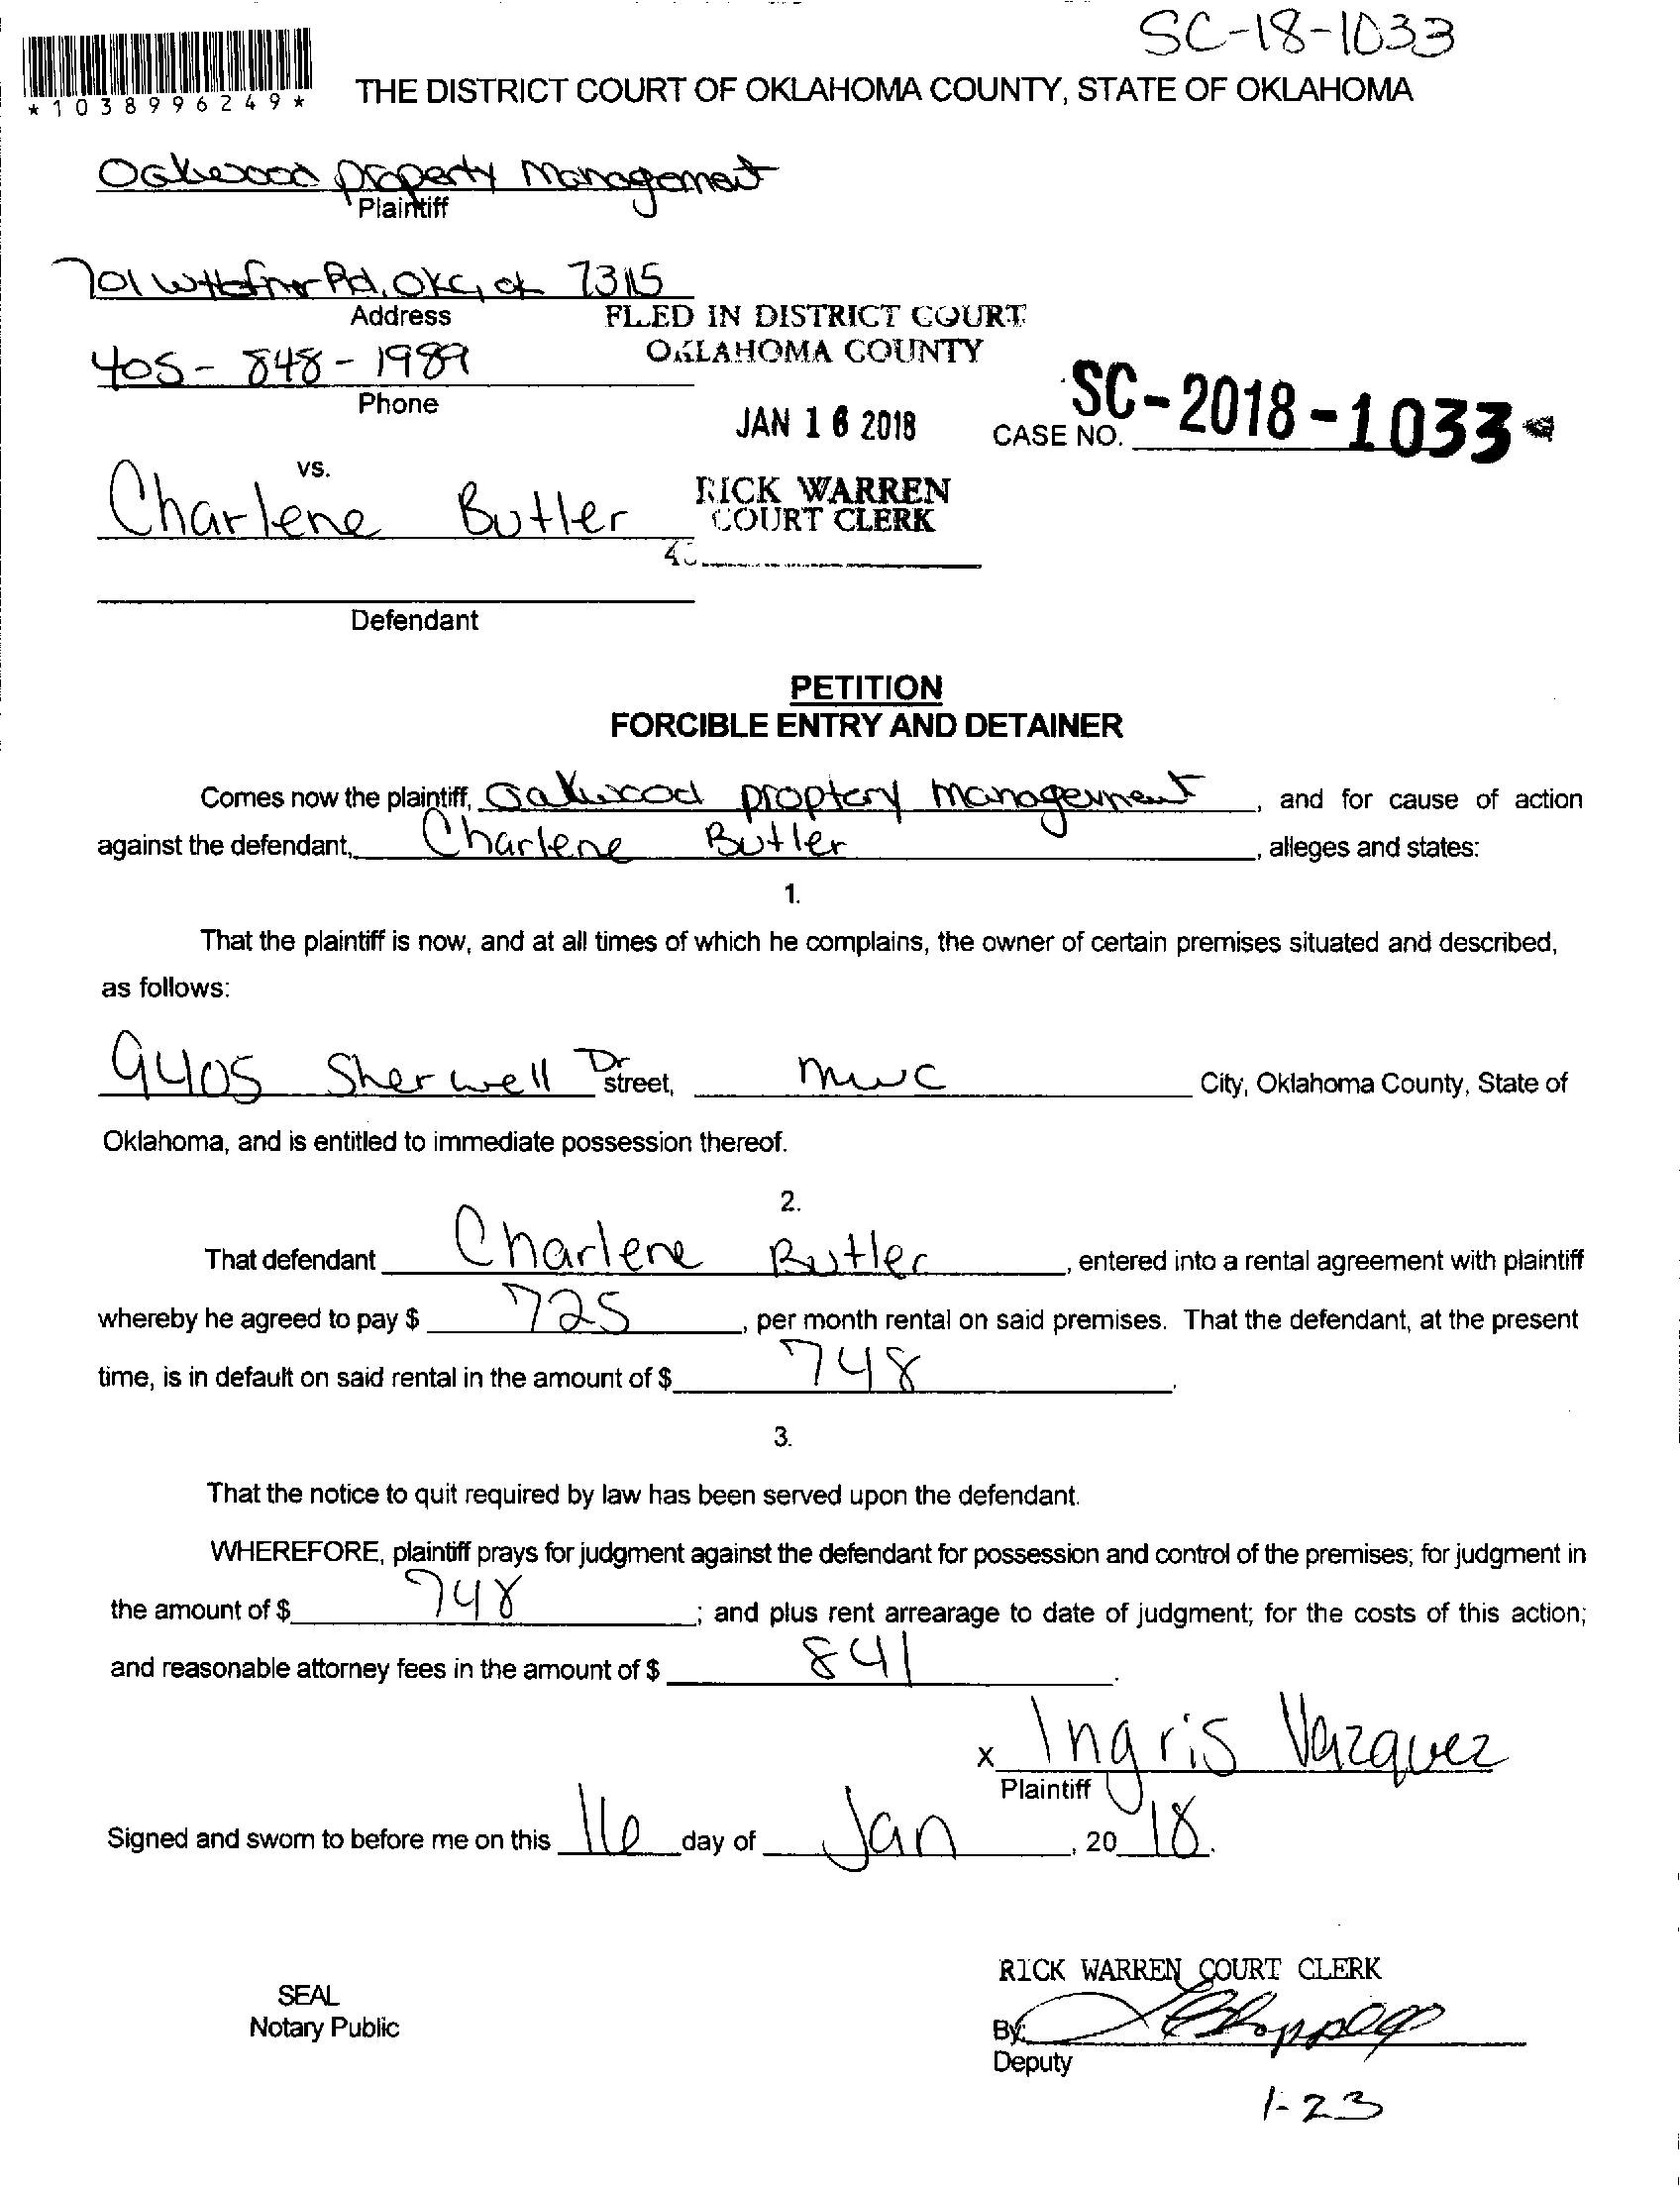 SC-18-1033
*1038996249*
THE DISTRICT COURT OF OKLAHOMA COUNTY, STATE OF OKLAHOMA
Oakwood property Management
Plaintiff
701 Rd, OKC, ok 73115
Address
FILED IN DISTRICT COURT
OKLAHOMA COUNTY
405-848-1989
Phone
JAN 16 2018
CASE NO. SC-2018-1033
vs.
Charlene Butler
RICK WARREN
COURT CLERK
Defendant
PETITION
FORCIBLE ENTRY AND DETAINER
Comes now the plaintiff, Oakwood proptery management, and for cause of action
against the defendant, Charlene Butler, alleges and states:
1.
That the plaintiff is now, and at all times of which he complains, the owner of certain premises situated and described,
as follows:
9405 Sherwell Dr street, mwc City, Oklahoma County, State of
Oklahoma, and is entitled to immediate possession thereof.
2.
That defendant Charlene Butler, entered into a rental agreement with plaintiff
whereby he agreed to pay $ 725, per month rental on said premises. That the defendant, at the present
time, is in default on said rental in the amount of $ 748.
3.
That the notice to quit required by law has been served upon the defendant.
WHEREFORE, plaintiff prays for judgment against the defendant for possession and control of the premises; for judgment in
the amount of $ 748; and plus rent arrearage to date of judgment; for the costs of this action;
and reasonable attorney fees in the amount of $ 841.
x Ingris Vazquez
Plaintiff
Signed and sworn to before me on this 16 day of Jan, 20 18.
RICK WARREN COURT CLERK
SEAL
Notary Public
By:
Deputy
1-23